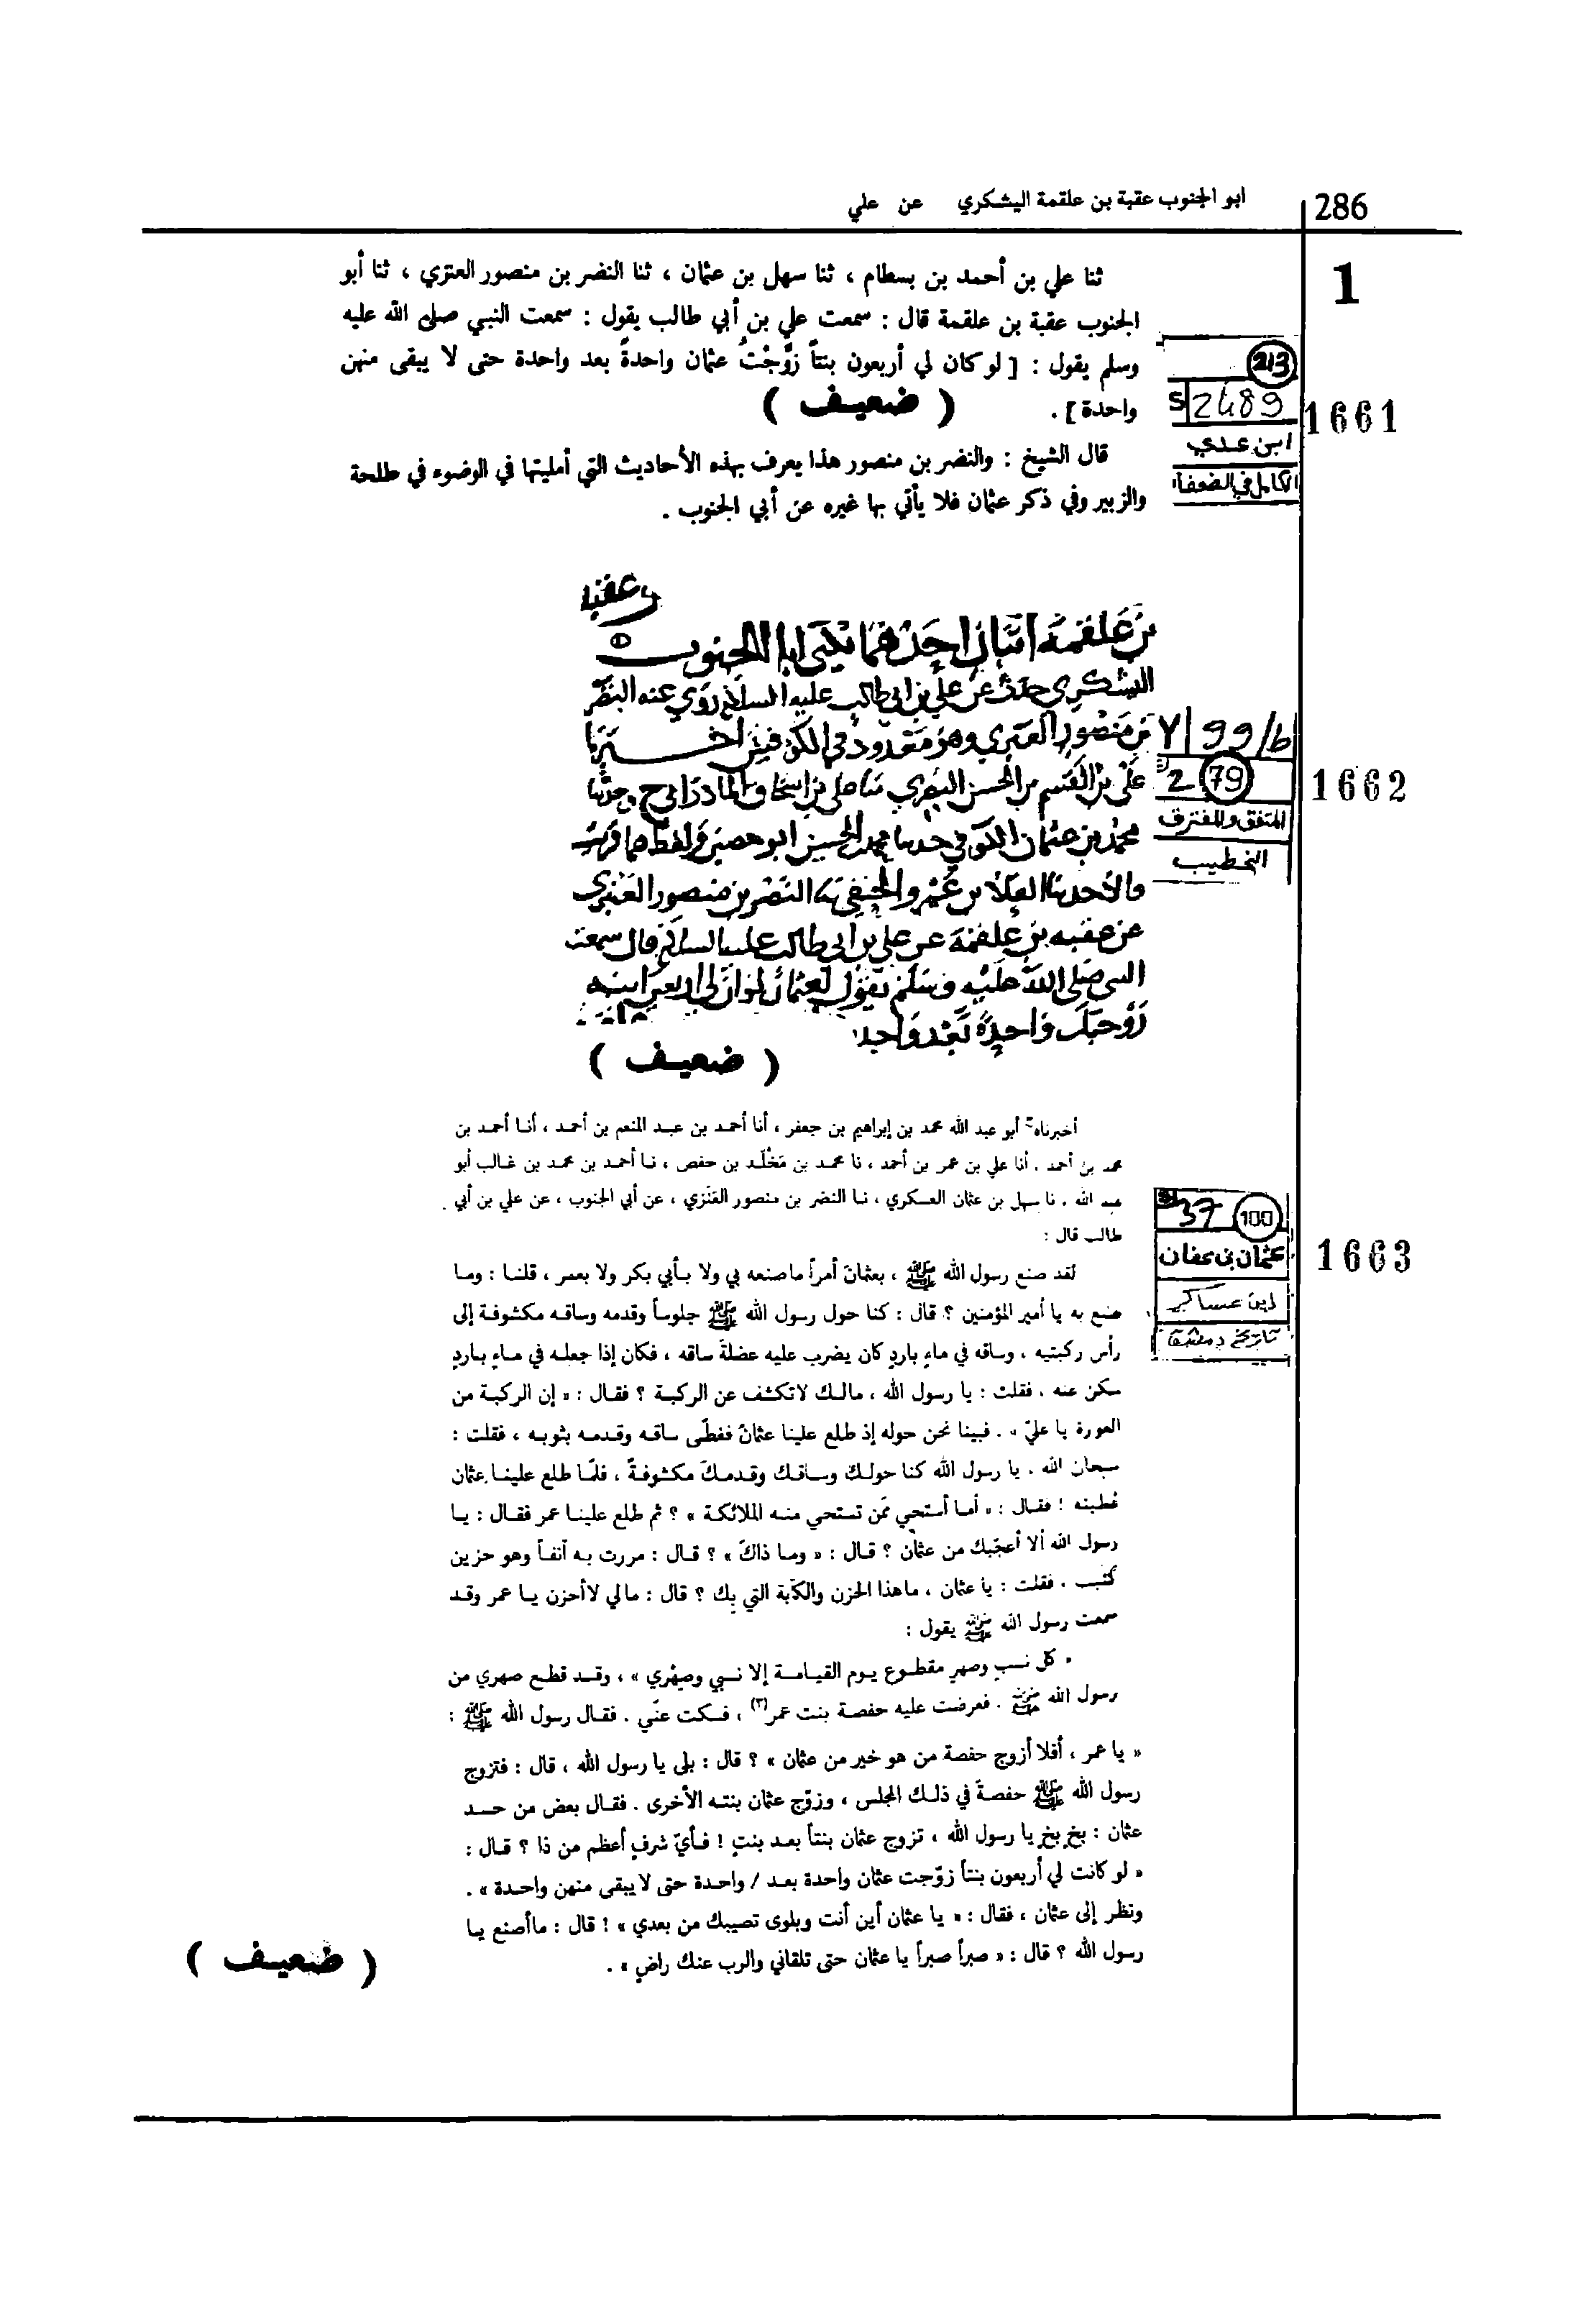 286
ابو الجنوب عقبة بن علقمة اليشكري عن علي
1
ثنا علي بن أحمد بن بسطام ، ثنا سهل بن عثمان ، ثنا النضر بن منصور العنزي ، ثنا أبو
الجنوب عقبة بن علقمة قال : سمعت علي بن أبي طالب يقول : سمعت النبي صلى الله عليه
وسلم يقول : [ لو كان لي أربعون بنتاً زوَّجْتُ عثمان واحدةً بعد واحدة حتى لا يبقى منهن
واحدة ] .
( ضعيف )
213
S 2489
ابن عدي
الكامل في الضعفاء
1661
قال الشيخ : والنضر بن منصور هذا يعرف بهذه الأحاديث التي أمليتها في الوضوء في طلحة
والزبير وفي ذكر عثمان فلا يأتي بها غيره عن أبي الجنوب .
وعقبة
بن علقمة اثنان احدهما يكنى ابا الجنوب
اليشكري حدث عن علي بن ابي طالب عليه السلام روى عنه النضر
بن منصور العنزي وهو معدود في الكوفيين اخبرنا
علي بن القسم بن الحسن البصري علي بن اسحاق المادرائي ح وحدثنا
محمد بن عثمان الكوفي حدثنا محمد بن الحسين ابو حصين ولفظهما
قالا حدثنا العلاء بن عمرو الحنفي النضر بن منصور العنزي
عن عقبه بن علقمة عن علي بن ابي طالب عليه السلام قال سمعت
النبي صلى الله عليه وسلم يقول لعثمان لو ان لي اربعين ابنه
زوجتك واحدة بعد واحده
( ضعيف )
99/b
2 79
المتفق والمفترق
الخطيب
1662
أخبرناه أبو عبد الله محمد بن إبراهيم بن جعفر ، أنا أحمد بن عبد المنعم بن أحمد ، أنا أحمد بن
محمد بن أحمد . أنا علي بن عمر بن أحمد ، نا محمد بن مَخْلَد بن حفص ، نا أحمد بن محمد بن غالب أبو
عبد الله . نا سهل بن عثمان العسكري ، نا النضر بن منصور العَنَزي ، عن أبي الجنوب ، عن علي بن أبي
طالب قال :
37 100
عثمان بن عفان
ابن عساكر
تاريخ دمشق
1663
لقد صنع رسول الله ﷺ ، بعثمان أمراً ما صنعه بي ولا بأبي بكر ولا بعمر ، قلنا : وما
صنع به يا أمير المؤمنين ؟ قال : كنا حول رسول الله ﷺ جلوساً وقدمه وساقه مكشوفة إلى
رأس ركبتيه ، وساقه في ماءٍ باردٍ كان يضرب عليه عضلة ساقه ، فكان إذا جعله في ماءٍ باردٍ
سكن عنه . فقلت : يا رسول الله ، مالك لا تكشف عن الركبة ؟ فقال : « إن الركبة من
العورة يا عليّ » . فبينا نحن حوله إذ طلع علينا عثمانُ فغطّى ساقه وقدمه بثوبه ، فقلت :
سبحان الله . يا رسول الله كنا حولك وساقك وقدمك مكشوفةً ، فلمّا طلع علينا عثمان
غطيته ! فقال : « أما أستحي ممّن تستحي منه الملائكة » ؟ ثم طلع علينا عمر فقال : يا
رسول الله ألا أعجّبك من عثمان ؟ قال : « وما ذاك » ؟ قال : مررت به آنفاً وهو حزين
كئيب . فقلت : يا عثمان ، ما هذا الحزن والكآبة التي بك ؟ قال : مالي لا أحزن يا عمر وقد
سمعت رسول الله ﷺ يقول :
« كل نسبٍ وصهرٍ مقطوع يوم القيامة إلا نسبي وصهْري » ، وقد قطع صهري من
رسول الله ﷺ . فعرضت عليه حفصة بنت عمر(٣) ، فسكت عنّي . فقال رسول الله ﷺ :
« يا عمر ، أفلا أزوج حفصة من هو خير من عثمان » ؟ قال : بلى يا رسول الله ، قال : فتزوج
رسول الله ﷺ حفصةَ في ذلك المجلس ، وزوّج عثمان بنته الأخرى . فقال بعض من حسد
عثمان : بخٍ بخٍ يا رسول الله ، تزوج عثمان بنتاً بعد بنتٍ ! فأيّ شرفٍ أعظم من ذا ؟ قال :
« لو كانت لي أربعون بنتاً زوّجت عثمان واحدة بعد / واحدة حتى لا يبقى منهن واحدة » .
ونظر إلى عثمان ، فقال : « يا عثمان أين أنت وبلوى تصيبك من بعدي » ! قال : ما أصنع يا
رسول الله ؟ قال : « صبراً صبراً يا عثمان حتى تلقاني والرب عنك راضٍ » .
( ضعيف )